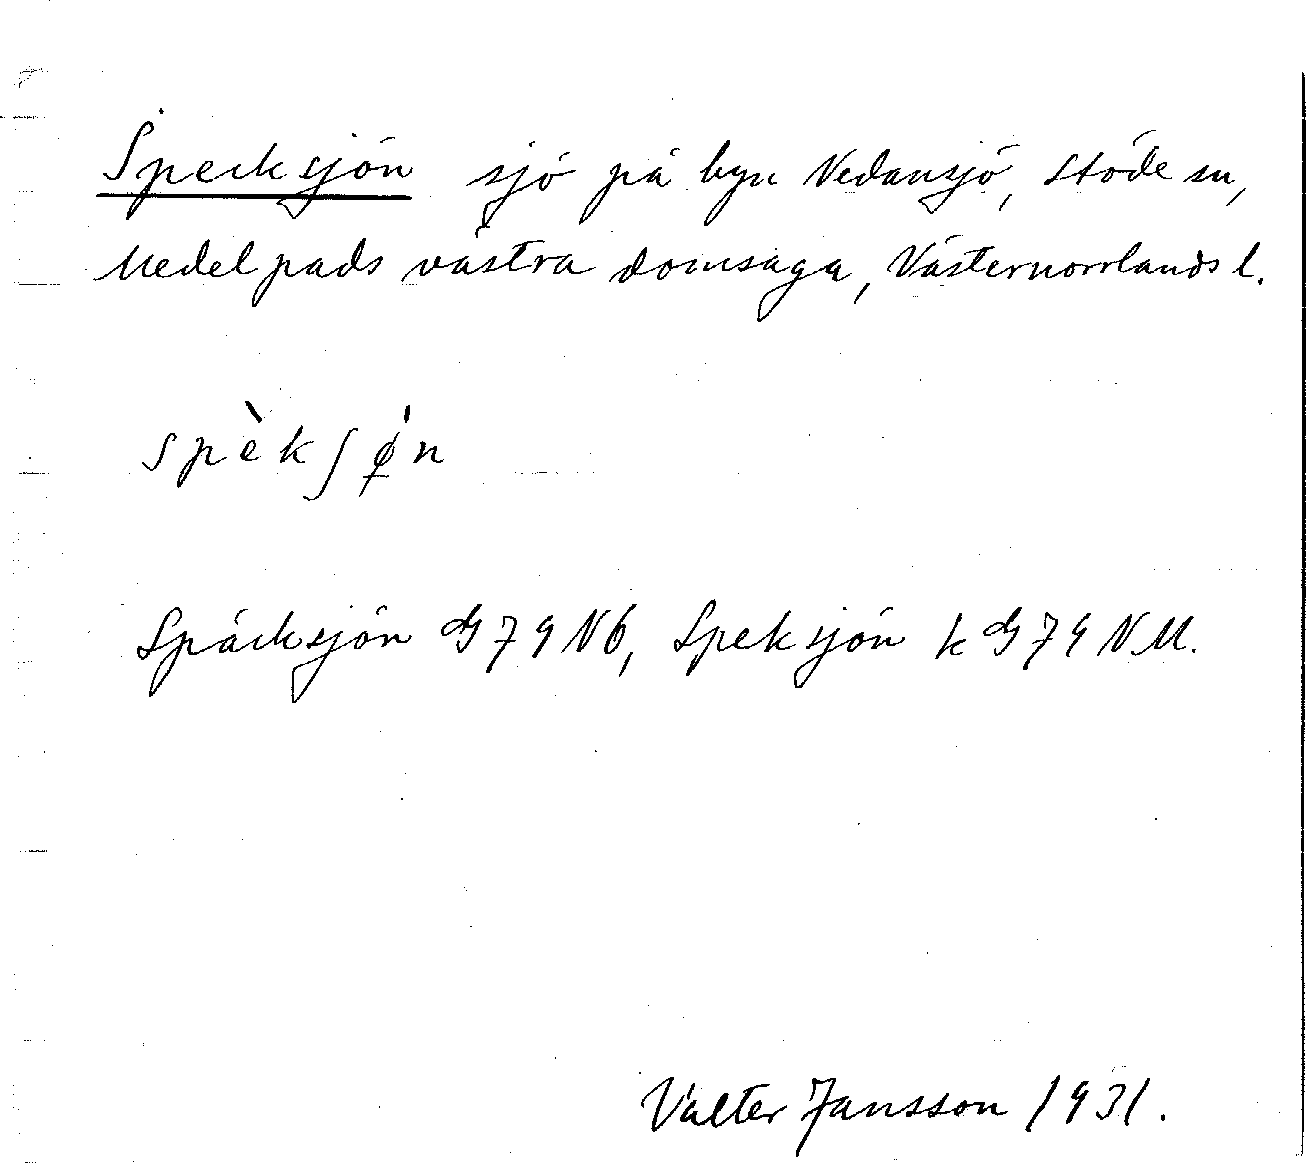 Specksjön sjö på byn Vedansjö, Stöde sn,
Medelpads västra domsaga, Västernorrlands l.
spèkʃø̀n
Späcksjön G79N6, Speksjön kG79NM.
Valter Jansson 1931.